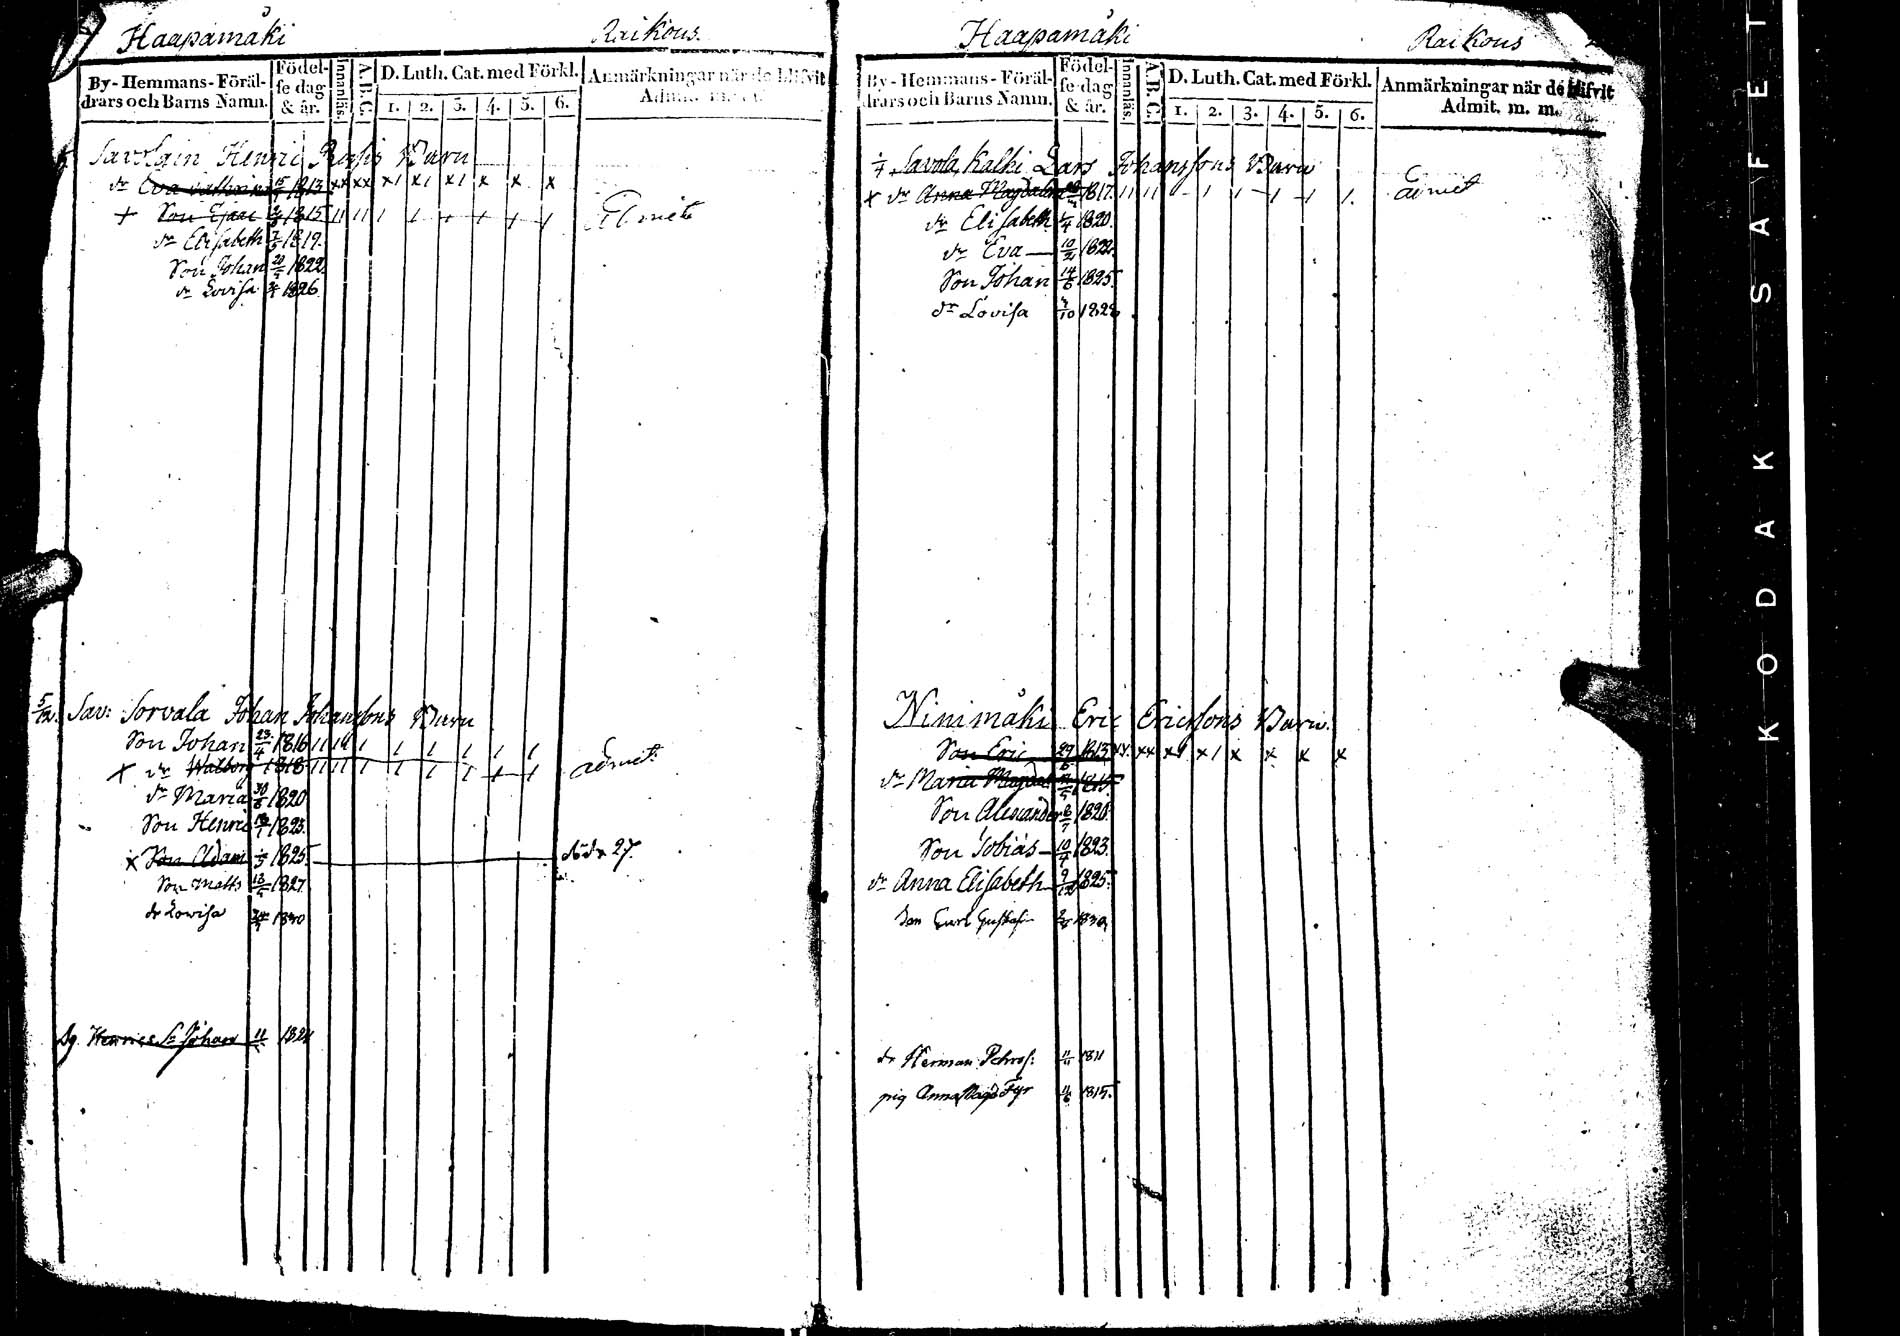 Haapamäki Raikous.
By-Hemmans-Föräl-
drars och Barns Namn.
Födel-
se dag
& år.
Innanläs.
A.B.C.
D. Luth. Cat. med Förkl.
1. 2. 3. 4. 5. 6.
Anmärkningar när de blifvit
Admit. m. m.
Savolain Henric Barn
dr Eva Cathrina 15 1813 xx xx x1 x1 x1 x x x
+ Son Isaac 1815 11 11 1 1 1 1 1 1 admit
dr Elisabeth 1819.
Son Johan 20 1822.
dr Lovisa 1826.
5/12. Sav: Sorvala Johan Johanssons Barn
Son Johan 23/4 1816 11 11 1 1 1 1 1 1
x dr Walborg 1818 11 11 1 1 1 1 1 1 admit.
dr Maria 30/6 1820
Son Henric 1823.
x Son Adam 1825. död 27.
Son Matts 13 1827
dr Lovisa 24 1830
Dg. Henrics Sn Johan 11 1824
Haapamäki Raikous
By-Hemmans-Föräl-
drars och Barns Namn.
Födel-
se dag
& år.
Innanläs.
A.B.C.
D. Luth. Cat. med Förkl.
1. 2. 3. 4. 5. 6.
Anmärkningar när de blifvit
Admit. m. m.
Savola, Kalki Lars Johanssons Barn
x dr Anna Magdalena 1817. 11 11 1 1 1 1 1 1. admit
dr Elisabeth 1/4 1820.
dr Eva 10/2 1822.
Son Johan 14/6 1825.
dr Lovisa /10 1828
Ninimäki Eric Ericssons Barn.
Son Eric 29/6 1813 xx. xx x1 x1 x x x x
dr Maria Magdal 1815.
Son Alexander 8/7 1820.
Son Tobias 10/4 1823.
dr Anna Elisabeth 9/12 1825.
Son Carl Gustaf 1830
dr Herman 11/11 1811
pig Anna Magd Fyr 11/6 1815.
KODAK SAFET